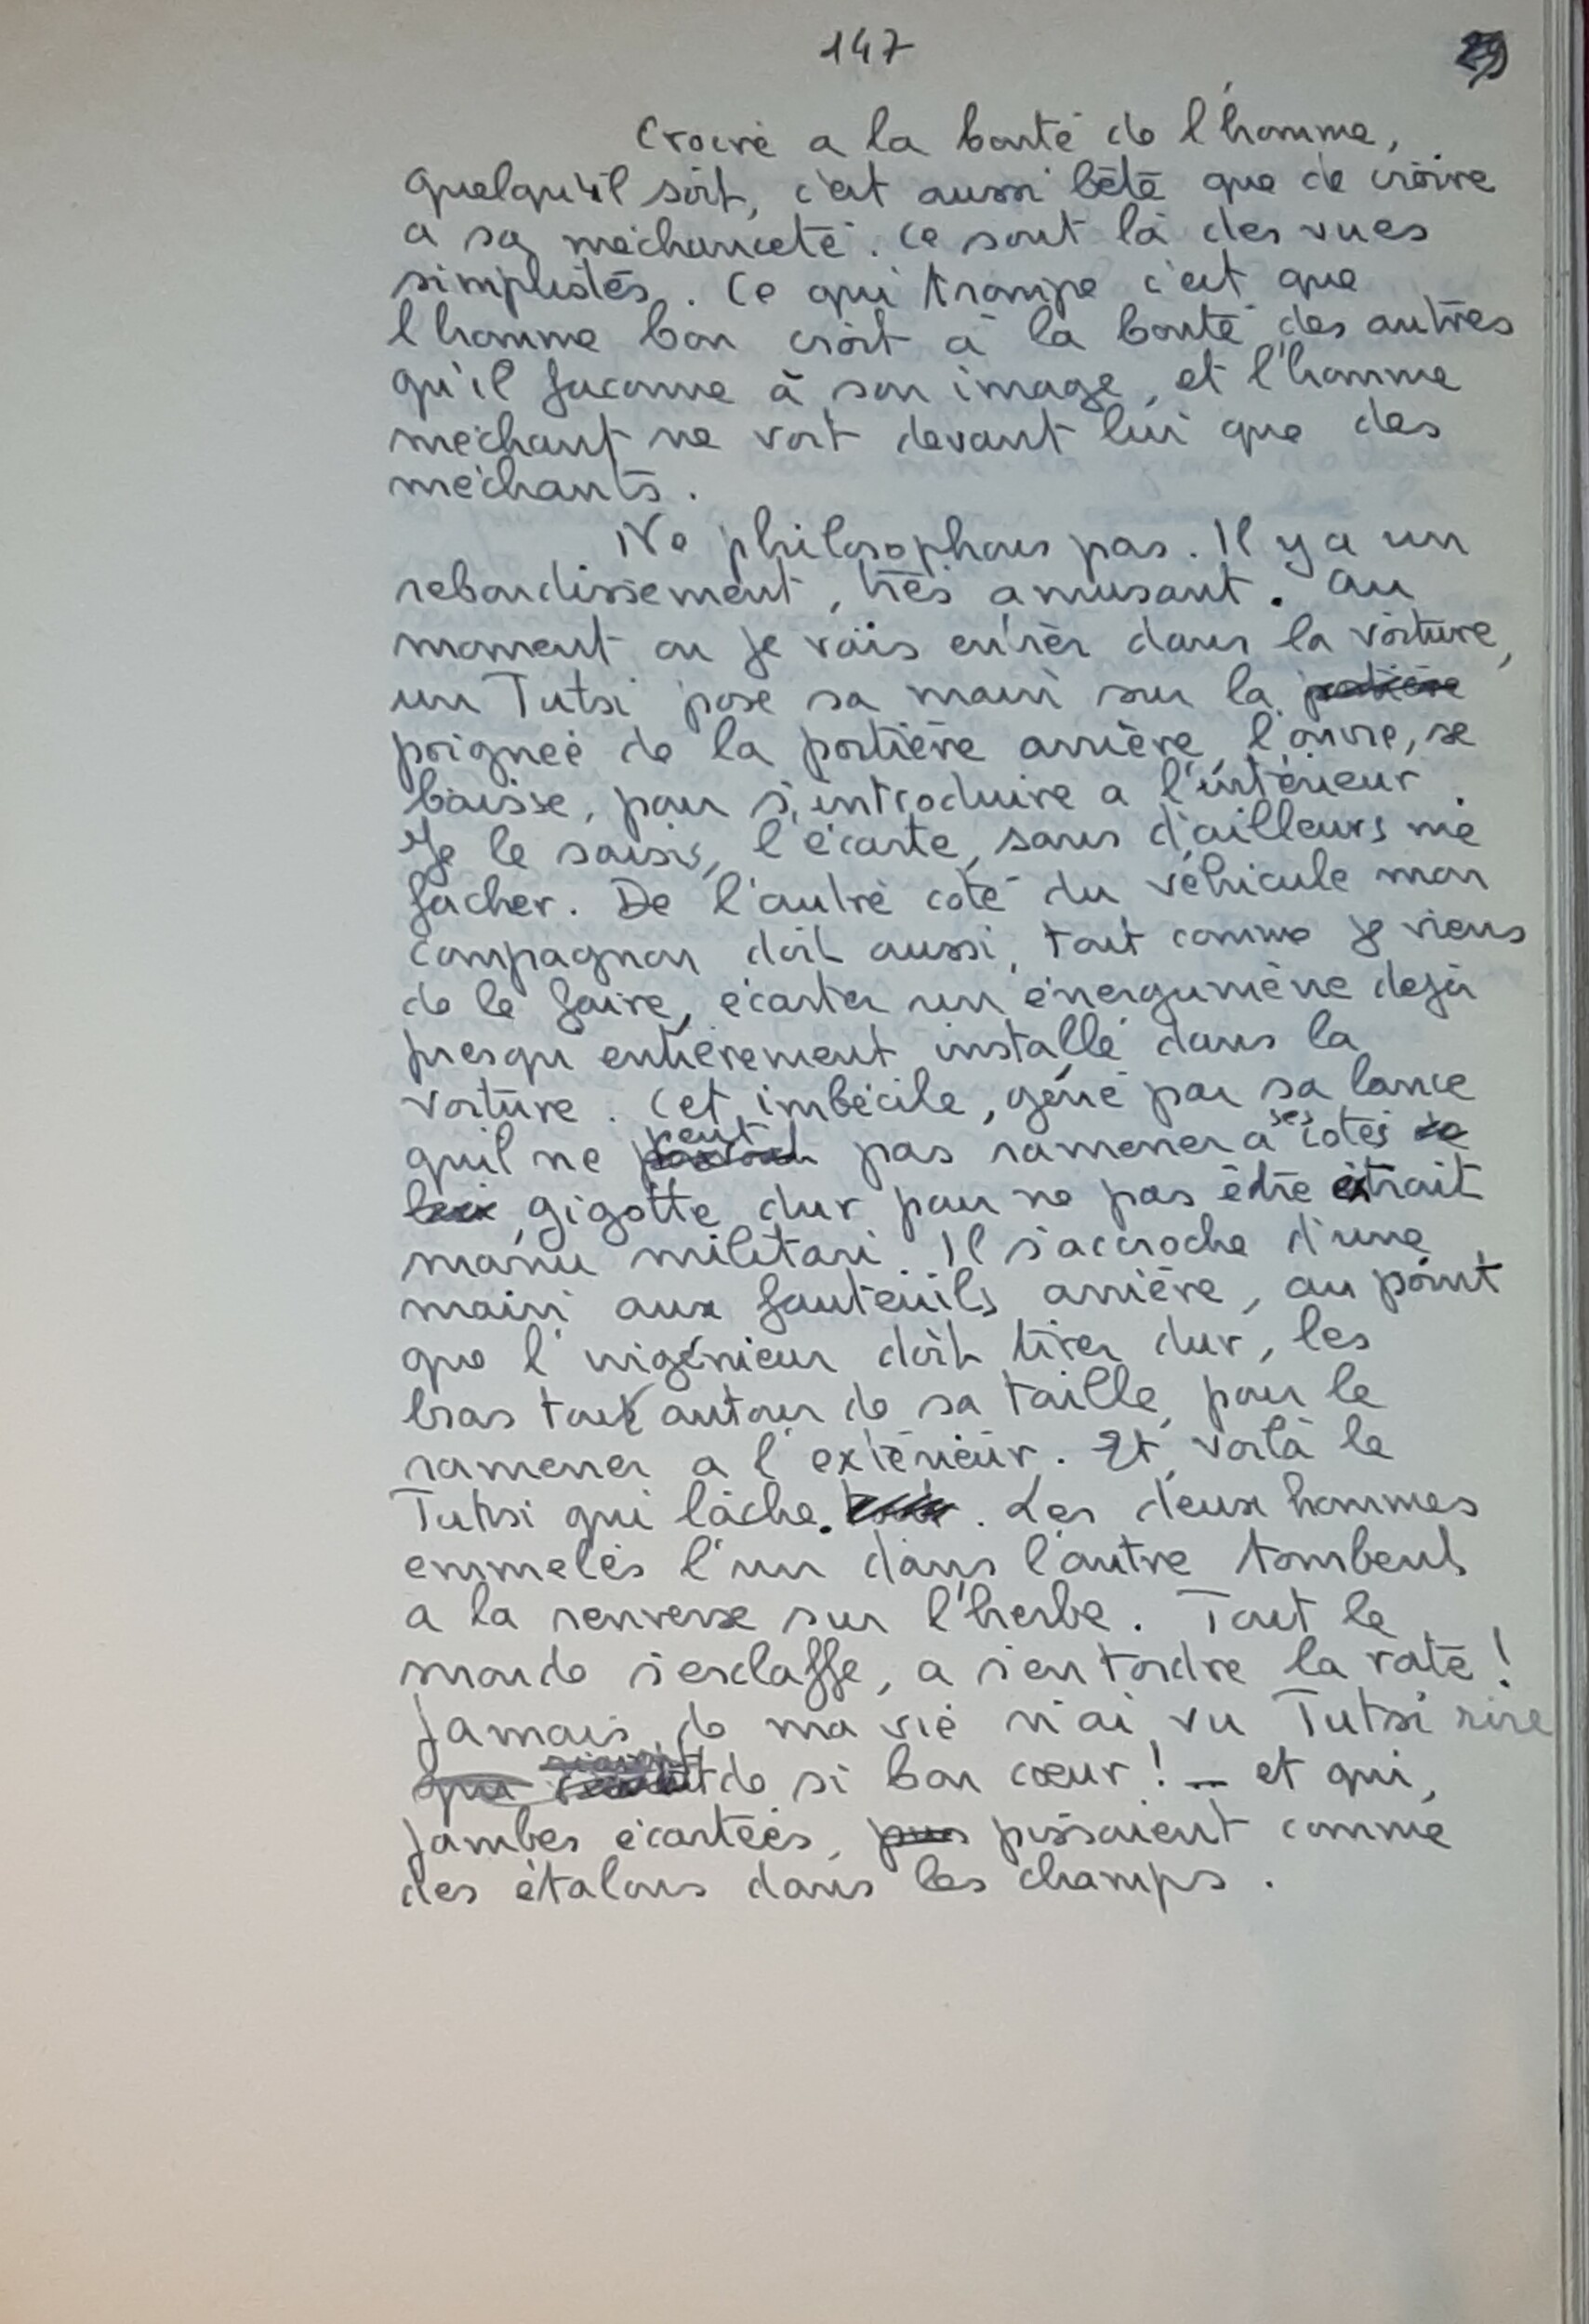 147
29
Croire a la bonté de l'homme,
quelqu'il soit, c'est aussi bête que de croire
a sa méchanceté. Ce sont là des vues
simplistes. Ce qui trompe c'est que
l'homme bon croit à la bonté des autres
qu'il faconne à son image, et l'homme
méchant ne voit devant lui que des
méchants.
Ne philosophons pas. Il y a un
rebondissement, très amusant. Au
moment ou je vais entrer dans la voiture,
un Tutsi pose sa main sur la portière
poignée de la portière arrière, l'ouvre, se
baisse, pour s'introduire a l'intérieur.
Je le saisis, l'écarte, sans d'ailleurs me
facher. De l'autre coté du véhicule mon
compagnon doit aussi, tout comme je viens
de le faire, écarter un énergumène dejà
presqu'entièrement installé dans la
voiture. Cet imbécile, géné par sa lance
qu'il ne peut pas ramener a ses cotés de
lui gigotte dur pour ne pas être extrait
manu militari. Il s'accroche d'une
main aux fauteuils arrière, au point
que l'ingénieur doit tirer dur, les
bras tout autour de sa taille, pour le
ramener a l'extérieur. Et voilà le
Tutsi qui lâche. Les deux hommes
emmelés l'un dans l'autre tombent
a la renverse sur l'herbe. Tout le
monde s'esclaffe, a s'en tordre la rate!
Jamais de ma vie n'ai vu Tutsi rire
qui riaient de si bon cœur! — et qui,
jambes écartées, pissaient comme
des étalons dans les champs.